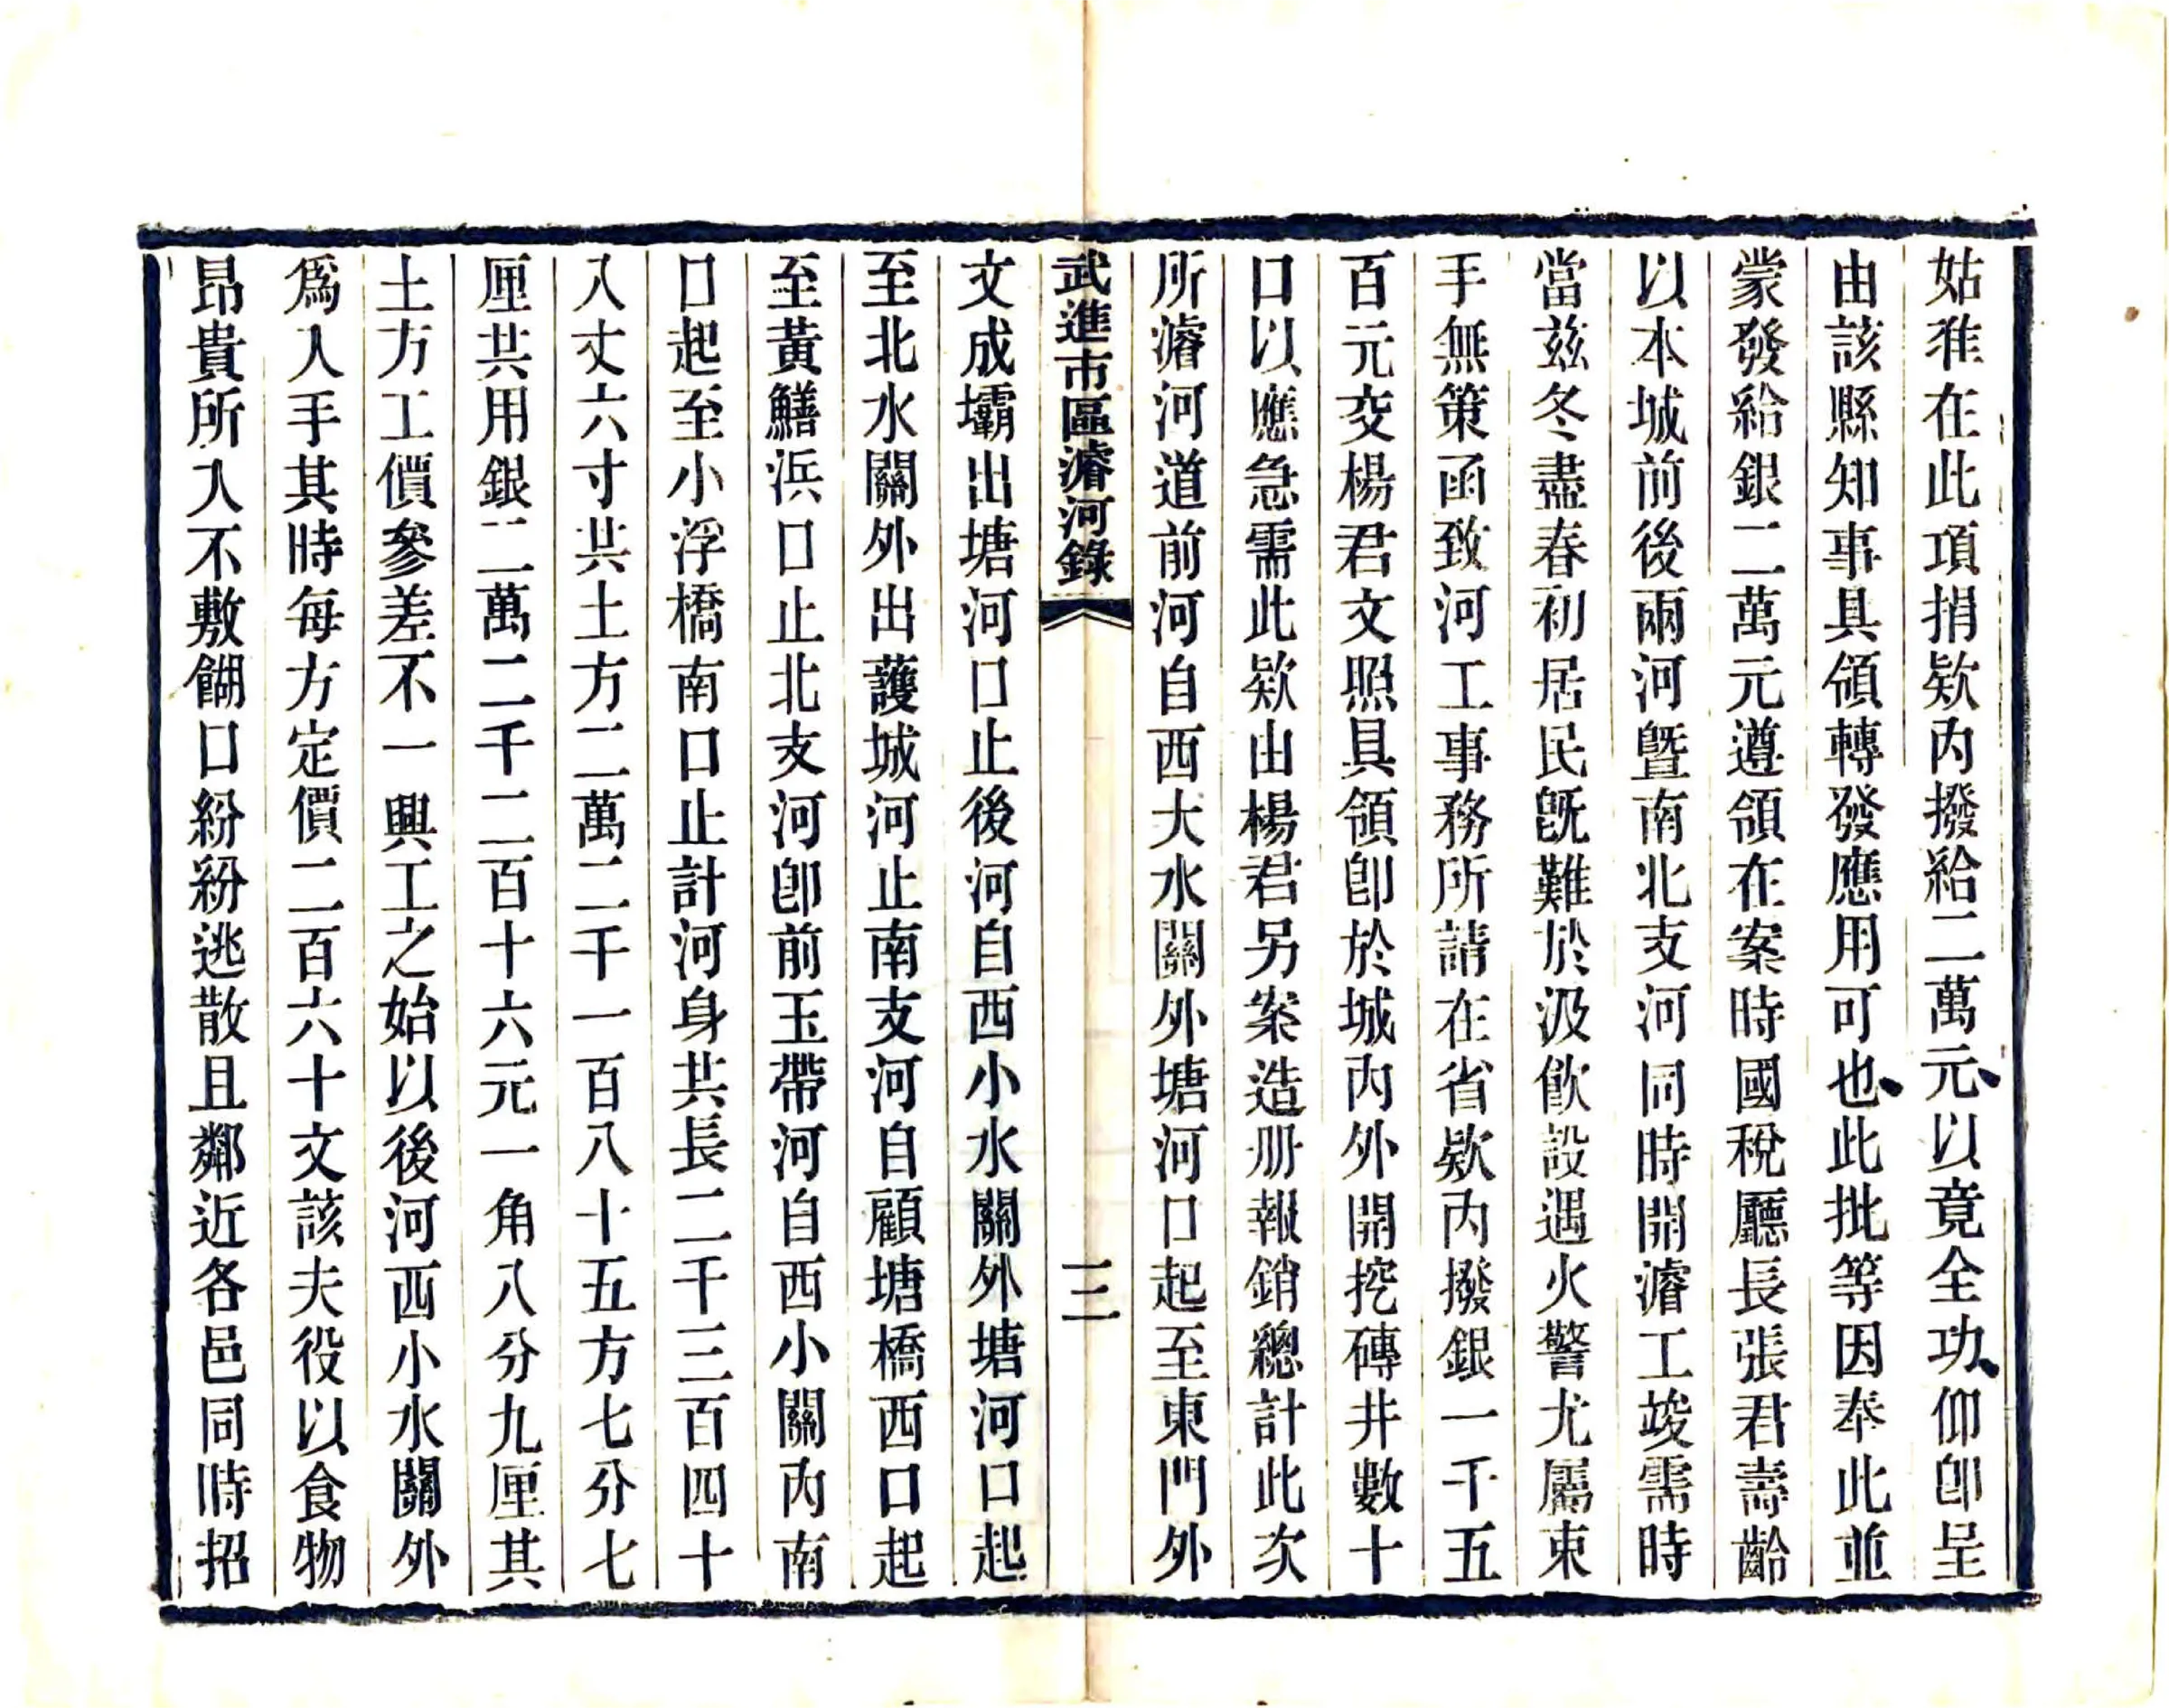 姑准在此項捐欵內撥給二萬元、以竟全功、仰卽呈
由該縣知事具領轉發應用可也、此批等因奉此並
蒙發給銀二萬元遵領在案時國稅廳長張君壽齡
以本城前後兩河暨南北支河同時開濬工竣需時
當兹冬盡春初居民旣難於汲飮設遇火警尤屬束
手無策函致河工事務所請在省欵內撥銀一千五
百元交楊君文照具領卽於城內外開挖磚井數十
口以應急需此欵由楊君另案造册報銷總計此次
所濬河道前河自西大水關外塘河口起至東門外
武進市區濬河錄
三
文成壩出塘河口止後河自西小水關外塘河口起
至北水關外出護城河止南支河自顧塘橋西口起
至黃鱔浜口止北支河卽前玉帶河自西小關內南
口起至小浮橋南口止計河身共長二千三百四十
八丈六寸共土方二萬二千一百八十五方七分七
厘共用銀二萬二千二百十六元一角八分九厘其
土方工價參差不一興工之始以後河西小水關外
爲入手其時每方定價二百六十文該夫役以食物
昂貴所入不敷餬口紛紛逃散且鄰近各邑同時招